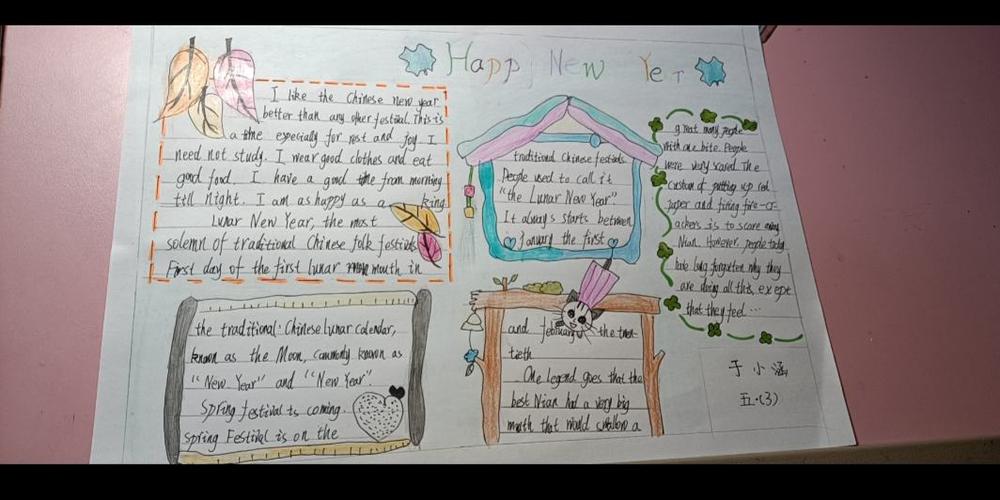 Happy New Year
I like the Chinese new year
better than any other festival. This is
a time especially for rest and joy I
need not study. I wear good clothes and eat
good food. I have a good the from morning
till night. I am as happy as a king
Lunar New Year, the most
solemn of traditional Chinese folk festivals
First day of the first lunar mouth in
the traditional Chinese lunar calendar,
known as the Moon, commonly known as
"New Year" and "New Year".
Spring festival is coming.
Spring Festival is on the
traditional Chinese festivals.
People used to call it
"the Lunar New Year"
It always starts between
January the first
and february the twen
tieth
One legend goes that the
best Nian had a very big
mouth that would swallow a
great many people
with one bite. People
were very scared The
custom of putting up red
paper and firing fire-cr-
ackers is to scare away
Nian. However, people today
have long forgotten why they
are doing all this, except
that they feel...
于小涵
五·(3)